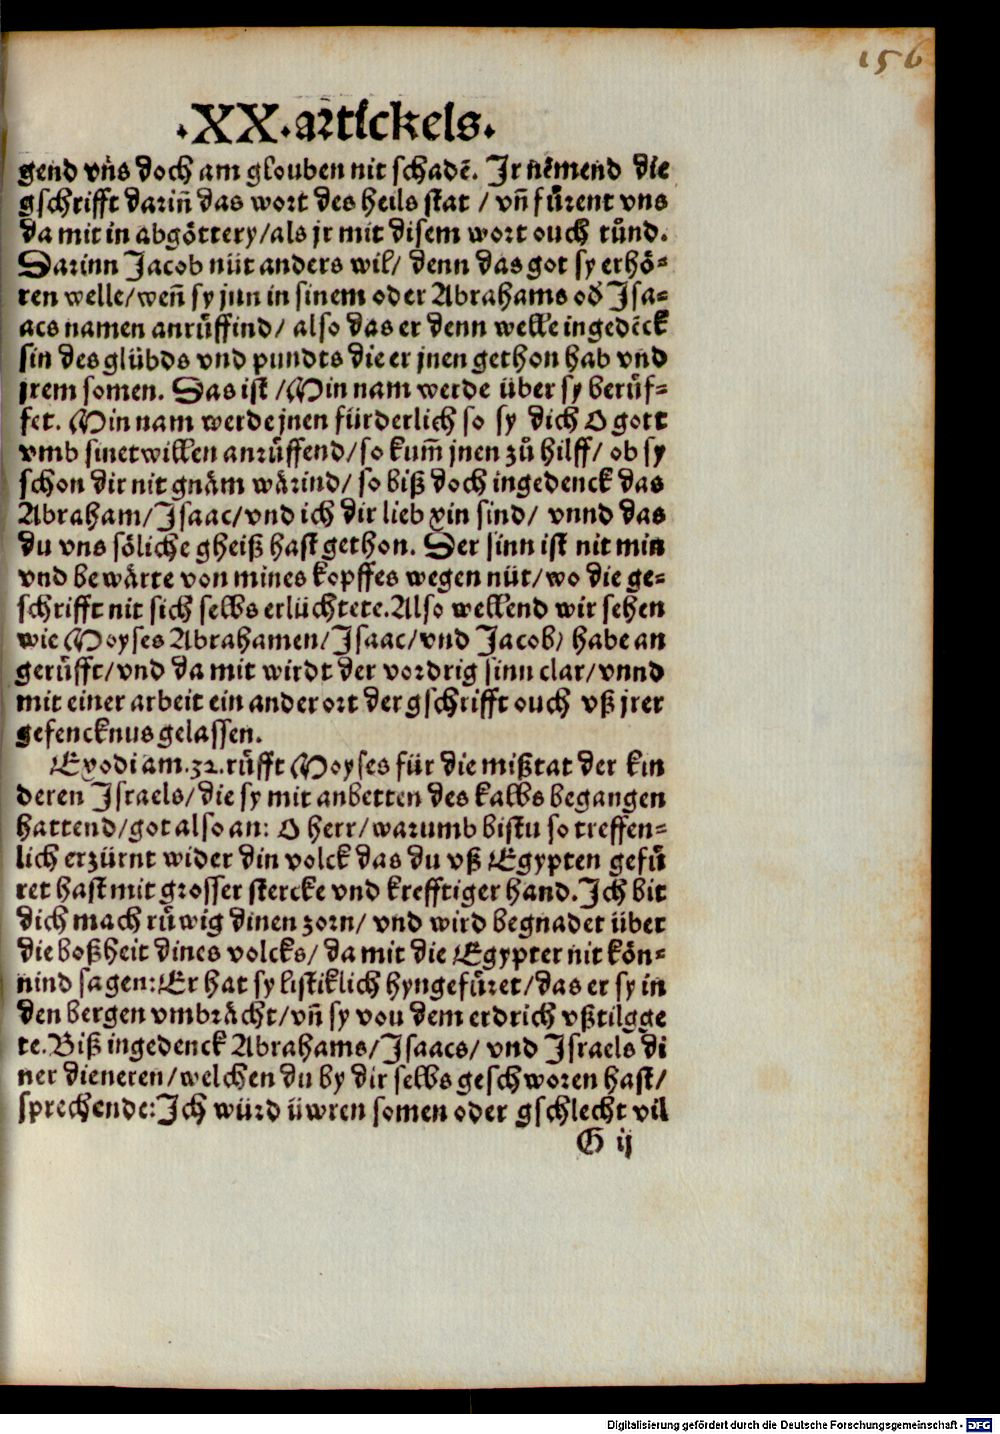 156
.XX.artickels.
gend vns doch am glouben nit schadē. Ir nēmend die
gschrifft dariñ das wort des heils stat / vñ fuͤrent vns
da mit in abgöttery/als jr mit disem wort ouch tuͦnd.
Darinn Jacob nüt anders wil/ denn das got sy erhö⸗
ren welle/weñ sy jnn in sinem oder Abrahams oď Isa⸗
acs namen anruͤffind/ also das er denn welle ingedēck
sin des glübds vnd pundts die er jnen gethon hab vnd
jrem somen. Das ist /Min nam werde über sy beruͤf⸗
fet. Min nam werde jnen fürderlich so sy dich O gott
vmb sinetwillen anruͤffend/so kum̄ jnen zuͦ hilff/ ob sy
schon dir nit gnäm wärind/ so biß doch ingedenck das
Abraham/Isaac/vnd ich dir lieb xin sind/ vnnd das
du vns söliche gheiß hast gethon. Der sinn ist nit min
vnd bewärte von mines kopffes wegen nüt/wo die ge⸗
schrifft nit sich selbs erlüchtete.Also wellend wir sehen
wie Moyses Abrahamen/Isaac/vnd Jacob/ habe an
geruͤfft/vnd da mit wirdt der vordrig sinn clar/vnnd
mit einer arbeit ein ander ort der gschrifft ouch vß jrer
gefencknus gelassen.
Exodi am.32.ruͤfft Moyses für die mißtat der kin
deren Israels/die sy mit anbetten des kalbs begangen
hattend/got also an: O herr/warumb bistu so treffen⸗
lich erzürnt wider din volck das du vß Egypten gefuͤ
ret hast mit grosser stercke vnd krefftiger hand.Ich bit
dich mach ruͤwig dinen zorn/ vnd wird begnadet über
die boßheit dines volcks/ da mit die Egypter nit kön⸗
nind sagen:Er hat sy listiklich hyngefuͤret/das er sy in
den bergen vmbrächt/vñ sy von dem erdrich vßtilgge
te.Biß ingedenck Abrahams/Isaacs/ vnd Israels di
ner dieneren/welchen du by dir selbs geschworen hast/
sprechende:Ich würd üwren somen oder gschlecht vil
G ij
Digitalisierung gefördert durch die Deutsche Forschungsgemeinschaft - DFG